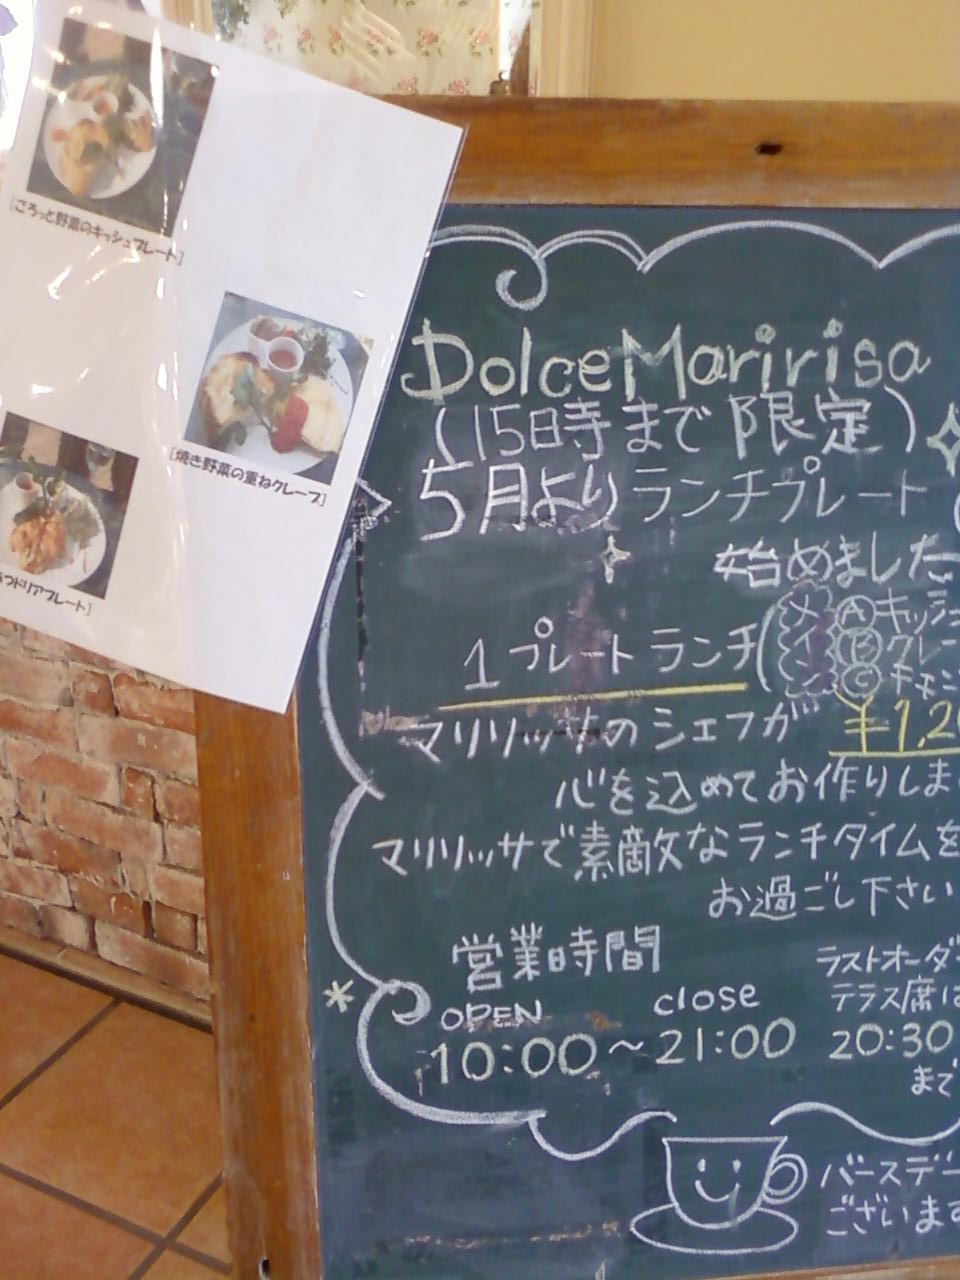 [ごろっと野菜のキッシュプレート]
[焼き野菜の重ねクレープ]
つドリアプレート]
Dolce Maririsa
(15日寺まで限定)
5月よりランチプレート
始めました
1プレートランチ(メイン
Ⓐキッシュ
Ⓑクレー
Ⓒチキン
¥1,20
マリリッサのシェフが
心を込めてお作りしま
マリリッサで素敵なランチタイムを
お過ごし下さい
営業時間
OPEN close
10:00〜21:00
ラストオーダー
テラス席は
20:30
まで
バースデー
ございます